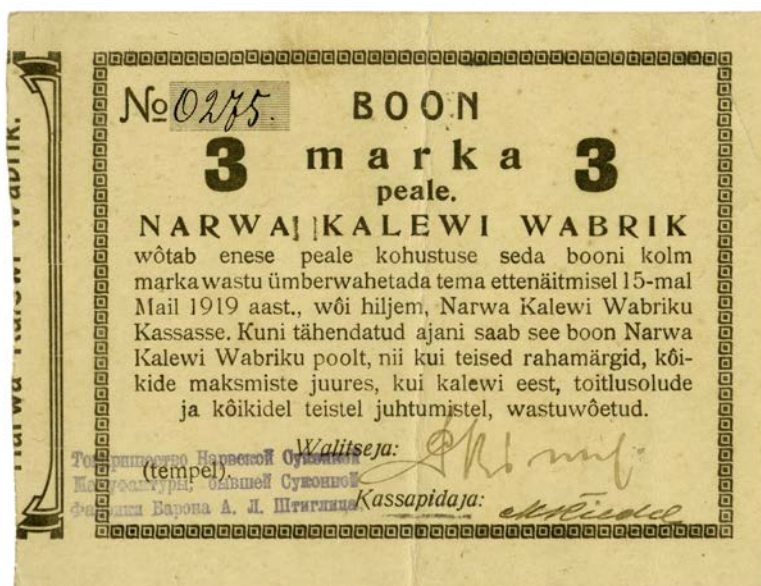 Narwa Kalewi Wabrik.
№ 0275.
BOON
3 marka 3
peale.
NARWA KALEWI WABRIK
wôtab enese peale kohustuse seda booni kolm
marka wastu ümberwahetada tema ettenäitmisel 15-mal
Mail 1919 aast., wôi hiljem, Narwa Kalewi Wabriku
Kassasse. Kuni tähendatud ajani saab see boon Narwa
Kalewi Wabriku poolt, nii kui teised rahamärgid, kôi-
kide maksmiste juures, kui kalewi eest, toitlusolude
ja kôikidel teistel juhtumistel, wastuwôetud.
Walitseja:
(tempel).
Товарищество Нарвской Суконной
Мануфактуры, бывшей Суконной
Фабрики Барона А. Л. Штиглица.
Kassapidaja: